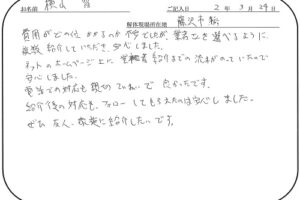 お名前 横山 ご記入日 2年 3月 29日
解体現場所在地 藤沢市
費用がどの位かかるのか不安でしたが、業者さんを選べるように
複数紹介していただき、安心しました。
ネットのホームページ上に 紹介までの流れがのっていたので
安心しました。
電話での対応も 親切 ていねいで 良かったです。
紹介後の対応も、フォローしてもらえたのは安心しました。
ぜひ 友人、に紹介したいです。